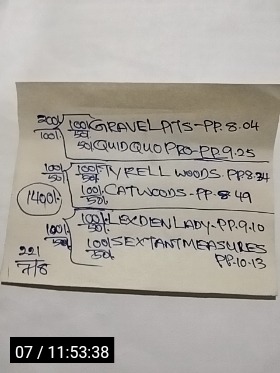 200/. 100/. GRAVEL PITS-PP.8.04
100/. 50/.
50/. QUID QUO PRO-PP.9.25
100/. 100/. TYRELL WOODS. PP.8.34
50/. 50/.
100/. CATWOODS-PP.8.49
50/.
1400/.
100/. LEXDEN LADY-PP.9.10
100/. 50/.
50/. 100/. SEXTANT MEASURES
50/. PP.10.13
221
7/8
07 / 11:53:38